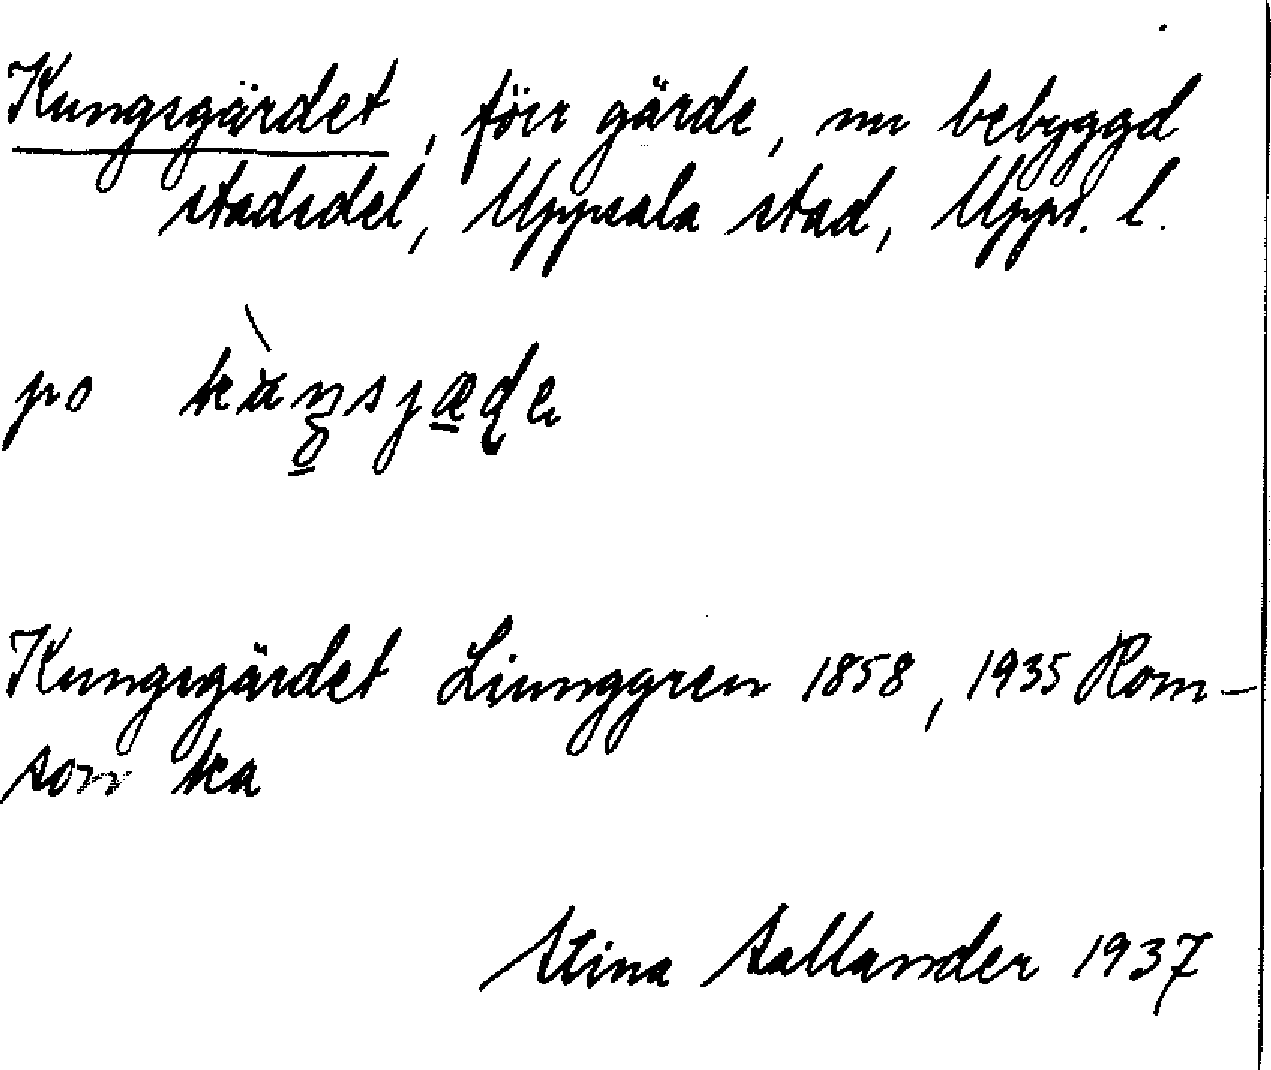 Kungsgärdet, förr gärde, nu bebyggd
stadsdel, Uppsala stad, Uppl. l.
po
Kungsgärdet Ljunggren 1858, 1935 Hom-
son ka
Stina Sallander 1937